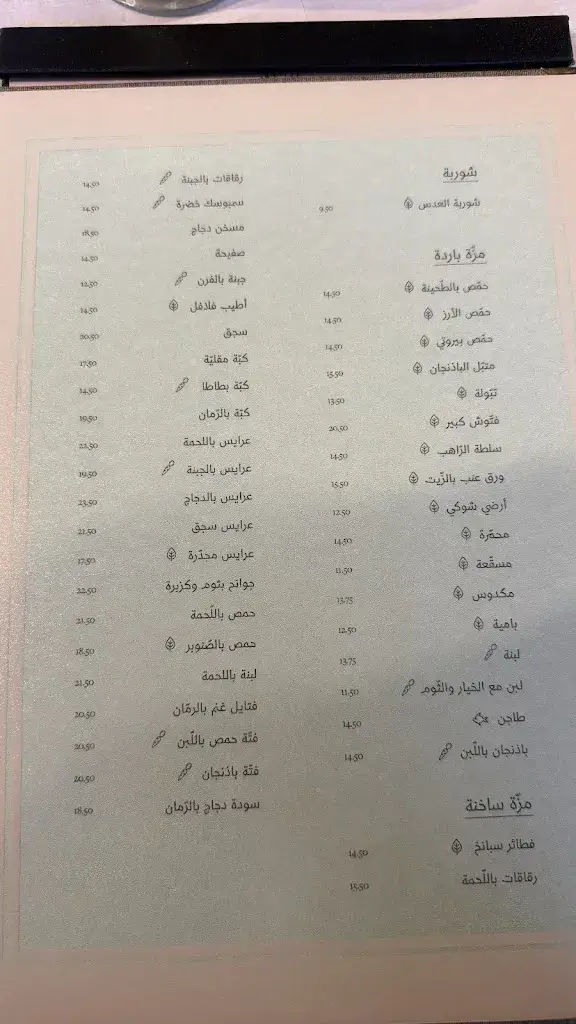 شوربة
شوربة العدس 9.50
مزّة باردة
حمّص بالطّحينة 14.50
حمّص الأرز 14.50
حمّص بيروتي 14.50
متبّل الباذنجان 15.50
تبّولة 13.50
فتّوش كبير 20.50
سلطة الرّاهب 14.50
ورق عنب بالزّيت 15.50
أرضي شوكي 12.50
محمّرة 14.50
مسقّعة 11.50
مكدوس 13.75
بامية 12.50
لبنة 13.75
لبن مع الخيار والثّوم 11.50
طاجن 14.50
باذنجان باللّبن 14.50
مزّة ساخنة
فطائر سبانخ 14.50
رقاقات باللّحمة 15.50
رقاقات بالجبنة 14.50
سمبوسك خضرة 14.50
مسخن دجاج 18.50
صفيحة 14.50
جبنة بالفرن 12.50
أطيب فلافل 14.50
سجق 20.50
كبّة مقليّة 17.50
كبّة بطاطا 14.50
كبّة بالرّمان 19.50
عرايس باللحمة 22.50
عرايس بالجبنة 19.50
عرايس بالدجاج 23.50
عرايس سجق 22.50
عرايس مخدّرة 17.50
جوانح بثوم وكزبرة 22.50
حمص باللّحمة 21.50
حمص بالصّنوبر 18.50
لبنة باللحمة 21.50
فتايل غنم بالرمّان 20.50
فتّة حمص باللّبن 20.50
فتّة باذنجان 20.50
سودة دجاج بالرّمان 18.50